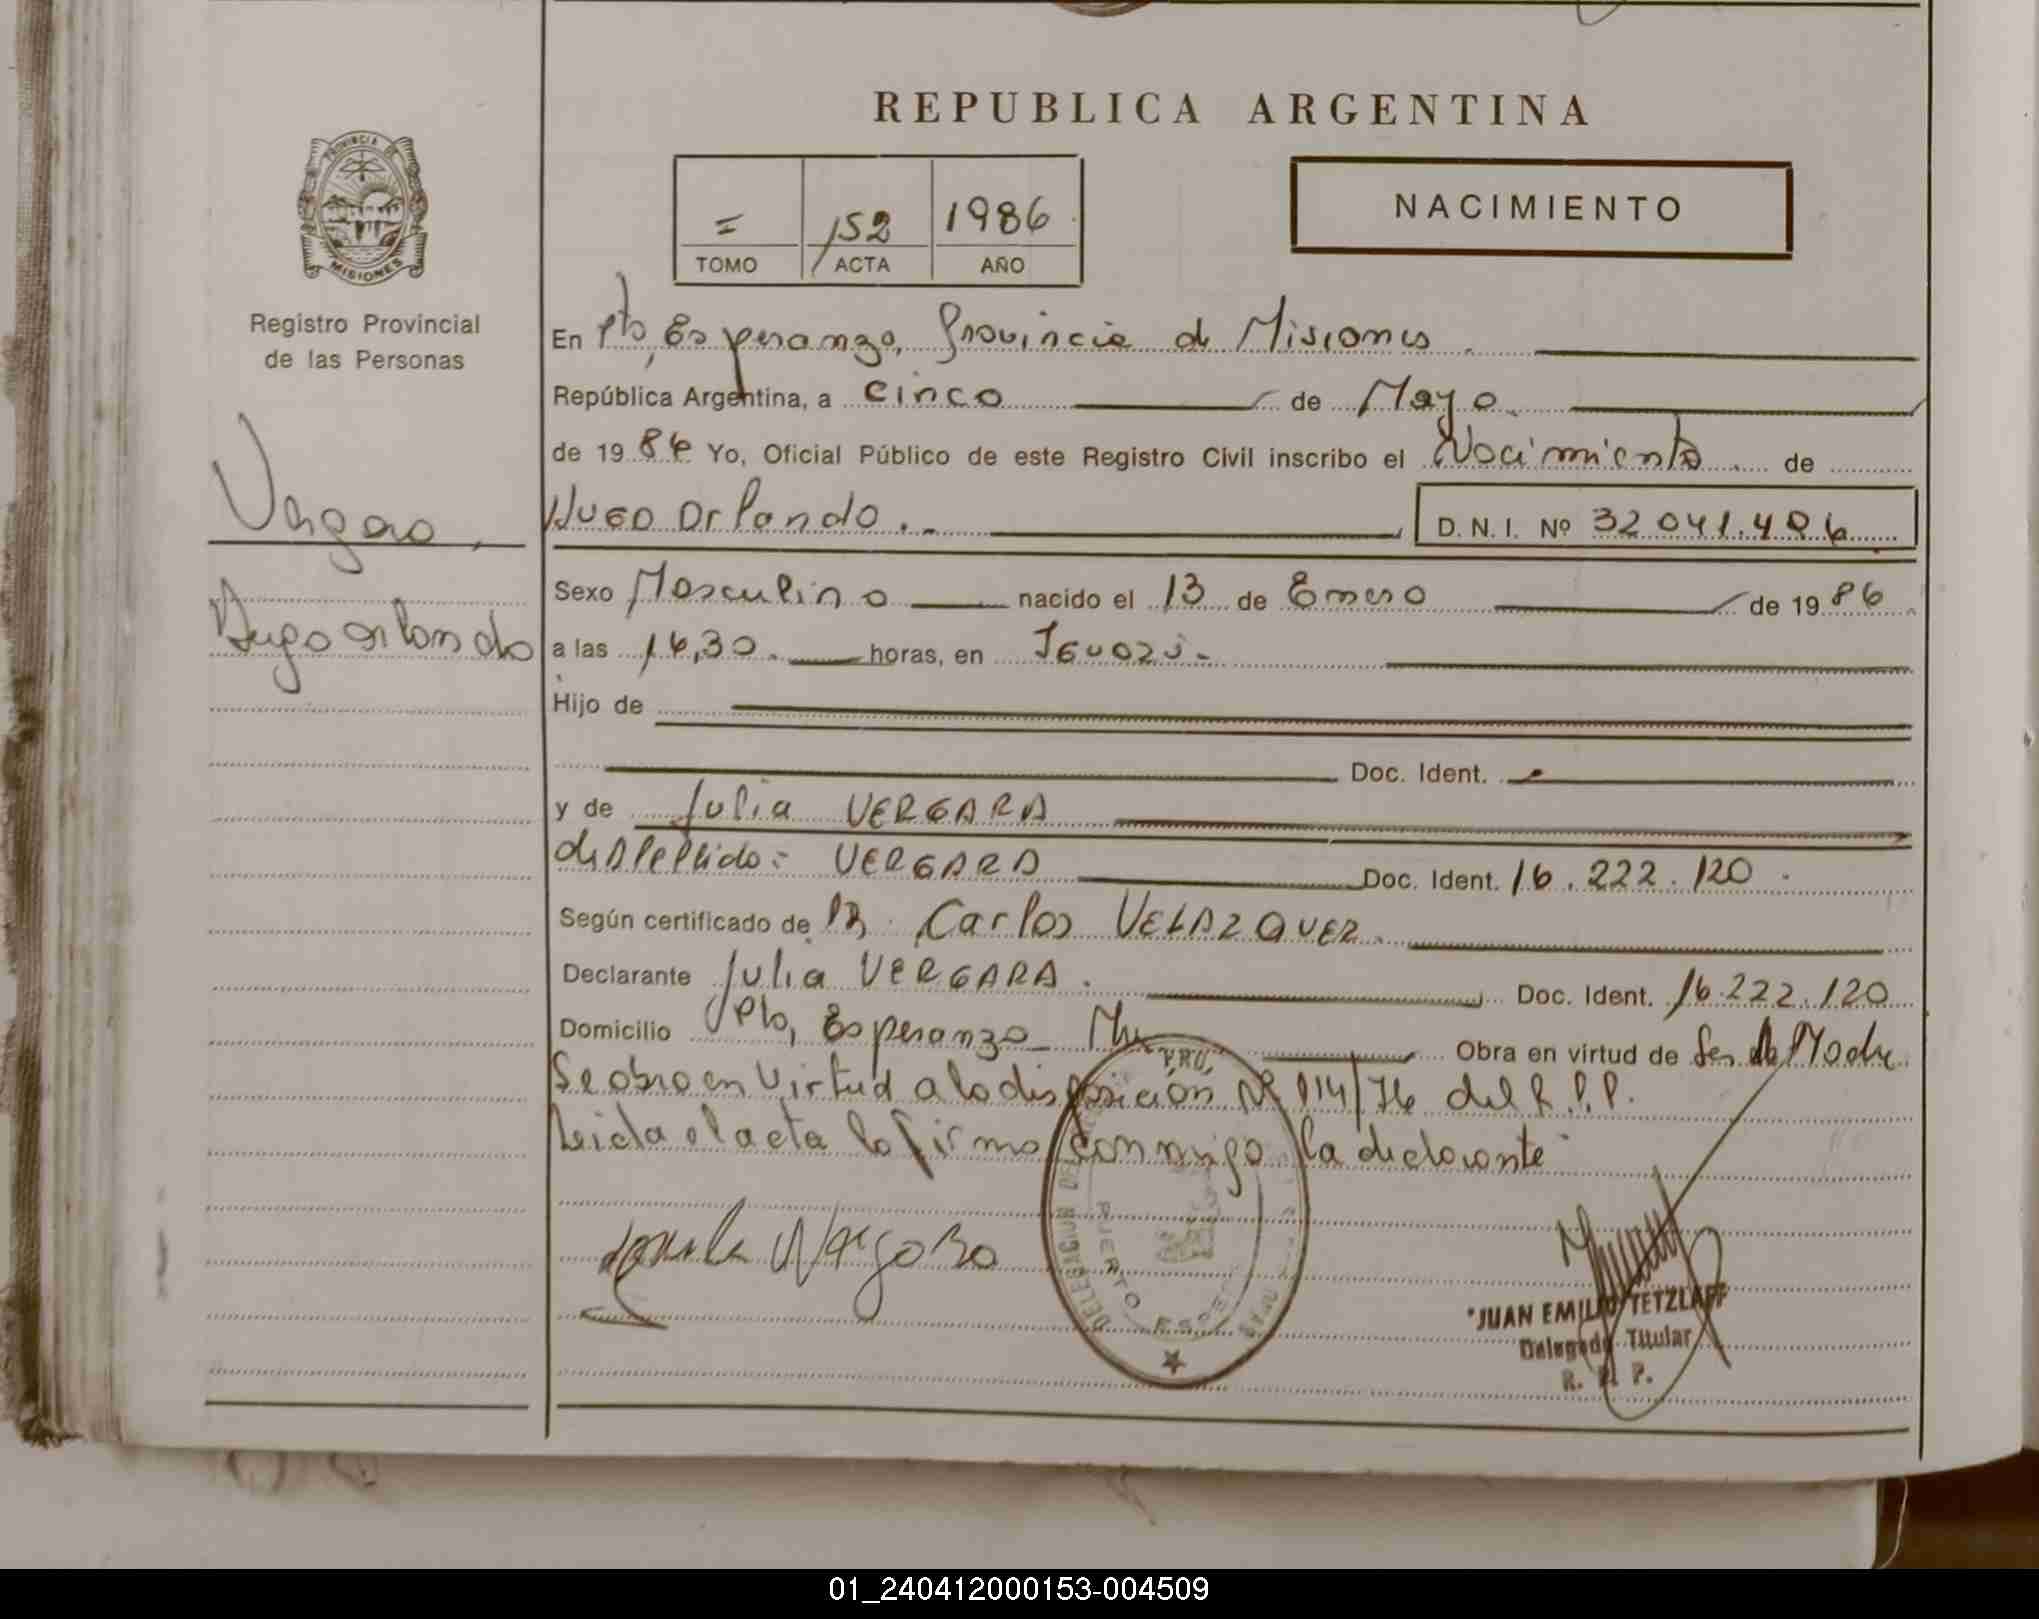 REPUBLICA ARGENTINA
PROVINCIA DE
MISIONES
Registro Provincial
de las Personas
= 152 1986
TOMO ACTA AÑO
NACIMIENTO
En Pto, Esperanza, Provincia de Misiones
República Argentina, a Cinco de Mayo
de 1986 Yo, Oficial Público de este Registro Civil inscribo el Nacimiento de
Hugo Orlando.
D.N.I. Nº 32 041.406
Hugo Orlando
Sexo Masculino nacido el 13 de Enero de 1986
a las 16,30 horas, en Iguazú
Hijo de
Doc. Ident.
y de Julia VERGARA
de Apellido = VERGARA Doc. Ident. 16.222.120
Según certificado de Carlos VELAZQUEZ
Declarante Julia VERGARA. Doc. Ident. 16.222.120
Domicilio Pto, Esperanza Obra en virtud de Ser la Madre
Se obro en virtud a la disposición Nº 114/76 del R.P.P.
Leida el acta la firma conmigo la declarante
DELEGACION DEL
PUERTO
JUAN EMILIO TETZLAFF
Delegado Titular
R. P. P.
01_240412000153-004509